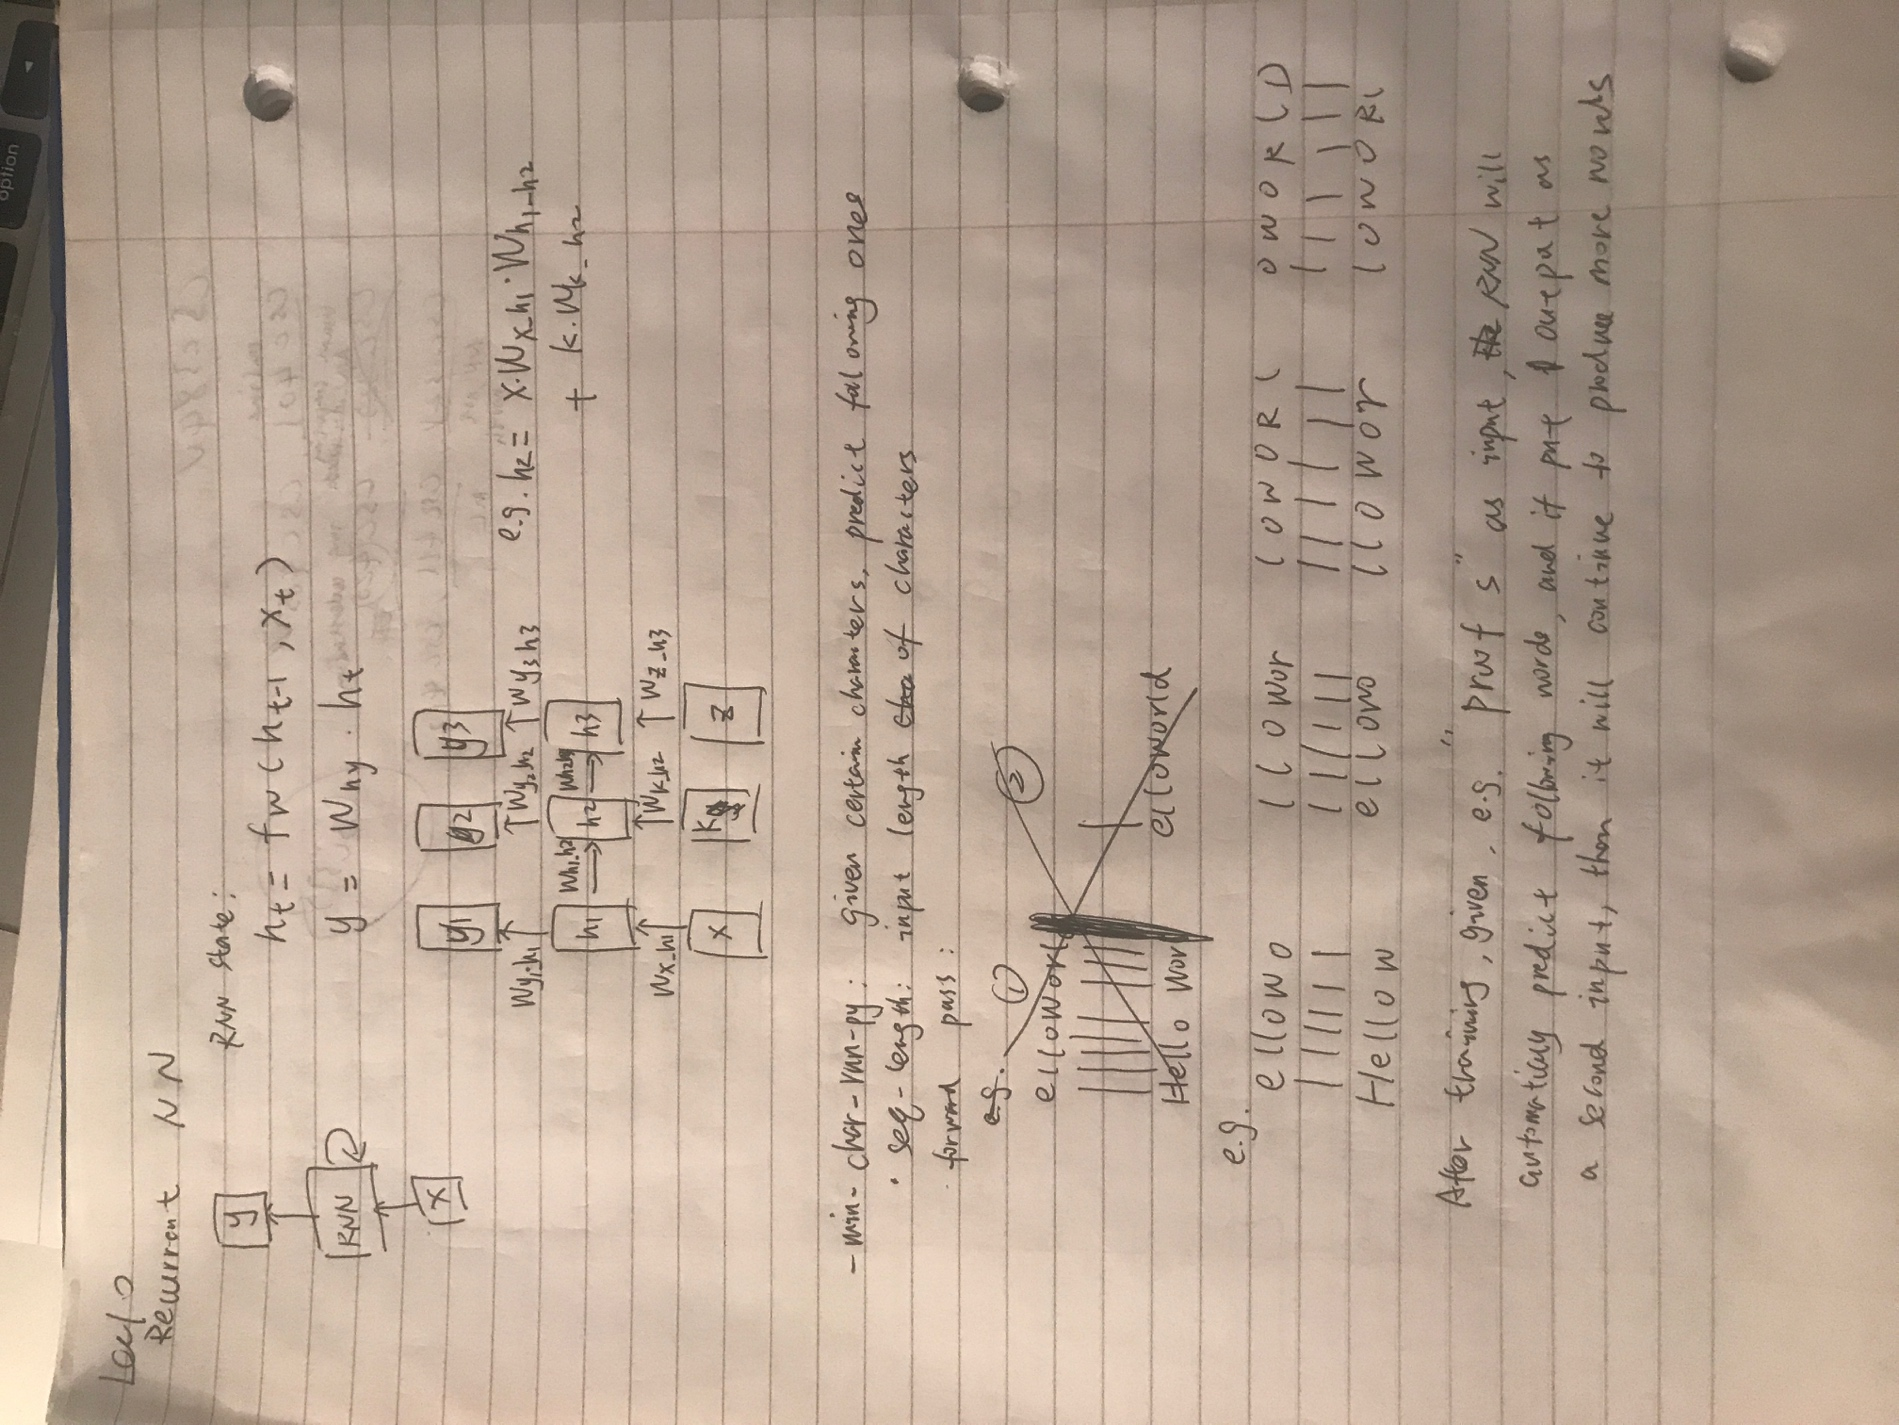 Lec10
Recurrent NN
y
RNN
x
RNN state:
ht = fw (ht-1, xt)
y = Why . ht
y1 y2 y3
Wy1-h1 Wy2-h2 Wy3h3
h1 Wh1.h2 h2 h3
Wx-h1 Wk-h2 Wz-h3
x k z
e.g. h2 = x.Wx-h1 . Wh1-h2
+ k.Wk-h2
- min-char-rnn-py: given certain characters, predict faloning ones
· seq-length: input length of characters
· forward pass:
e.g. ① ②
elloworl
Hello Worl elloworld
e.g.
ellowo llowor loworl oworlD
Hellow ellowo llowor lowoRl
After training, given, e.g. "Prwf s" as input, RNN will
automaticly predict following words, and if put output as
a second input, then it will continue to produce more words
option